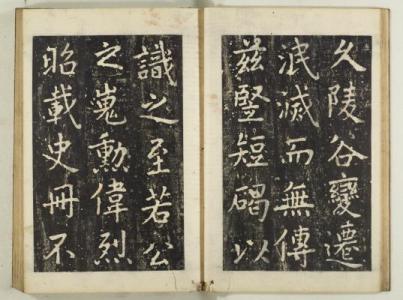 久陵谷變遷
泯滅而無傳
茲竪短碣以
識之至若公
之嵬勳偉烈
昭載史冊不